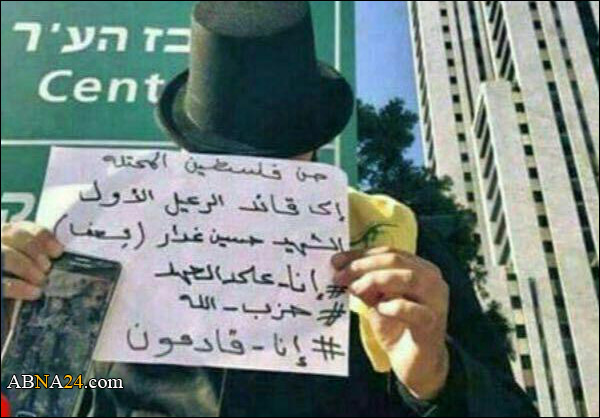 כז העיר
Cent
من فلسطين المحتله
إلى قائد الرعيل الأول
الشهيد حسين غدار
#إنا_على_العهد
#حزب_الله
#إنا_قادمون
ABNA24.com